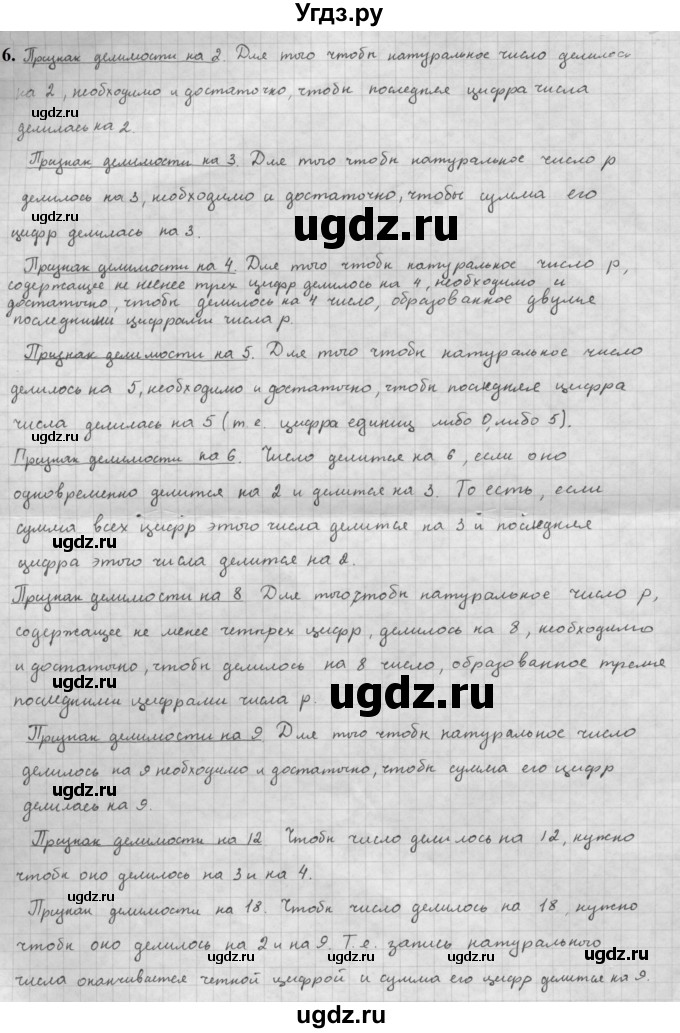 Угдз.ру
6. Признак делимости на 2. Для того чтобы натуральное число делилось
на 2, необходимо и достаточно, чтобы последняя цифра числа
ugdz.ru
делилась на 2.
Признак делимости на 3. Для того чтобы натуральное число p
делилось на 3, необходимо и достаточно, чтобы сумма его
ugdz.ru
ugdz.ru
цифр делилась на 3.
Признак делимости на 4. Для того чтобы натуральное число p,
содержащее не менее трех цифр делилось на 4, необходимо и
достаточно, чтобы делилось на 4 число, образованное двумя
последними цифрами числа p.
ugdz.ru
Признак делимости на 5. Для того чтобы натуральное число
делилось на 5, необходимо и достаточно, чтобы последняя цифра
числа делилась на 5 (т.е. цифра единиц либо 0, либо 5).
ugdz.ru
Признак делимости на 6. Число делится на 6, если оно
одновременно делится на 2 и делится на 3. То есть, если
сумма всех цифр этого числа делится на 3 и последняя
ugdz.ru
цифра этого числа делится на 2.
Признак делимости на 8 Для того, чтобы натуральное число p,
содержащее не менее четырех цифр, делилось на 8, необходимо
и достаточно, чтобы делилось на 8 число, образованное тремя
ugdz.ru
ugdz.ru
последними цифрами числа p.
Признак делимости на 9. Для того чтобы натуральное число
делилось на 9 необходимо и достаточно, чтобы сумма его цифр
ugdz.ru
делилась на 9.
Признак делимости на 12 Чтобы число делилось на 12, нужно
чтобы оно делилось на 3 и на 4.
ugdz.ru
Признак делимости на 18. Чтобы число делилось на 18, нужно
чтобы оно делилось на 2 и на 9. Т.е. запись натурального
ugdz.ru
числа оканчивается четной цифрой и сумма его цифр делится на 9.
ugdz.ru